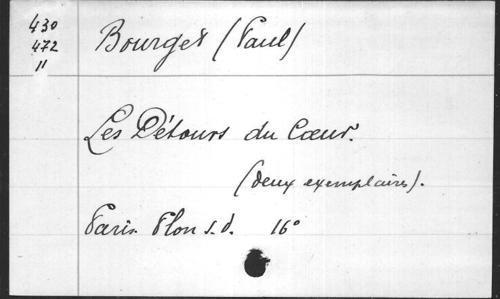 430
472
11
Bourget (Paul)
Les Détours du Cœur.
(deux exemplaires).
Paris Plon s.d. 16°